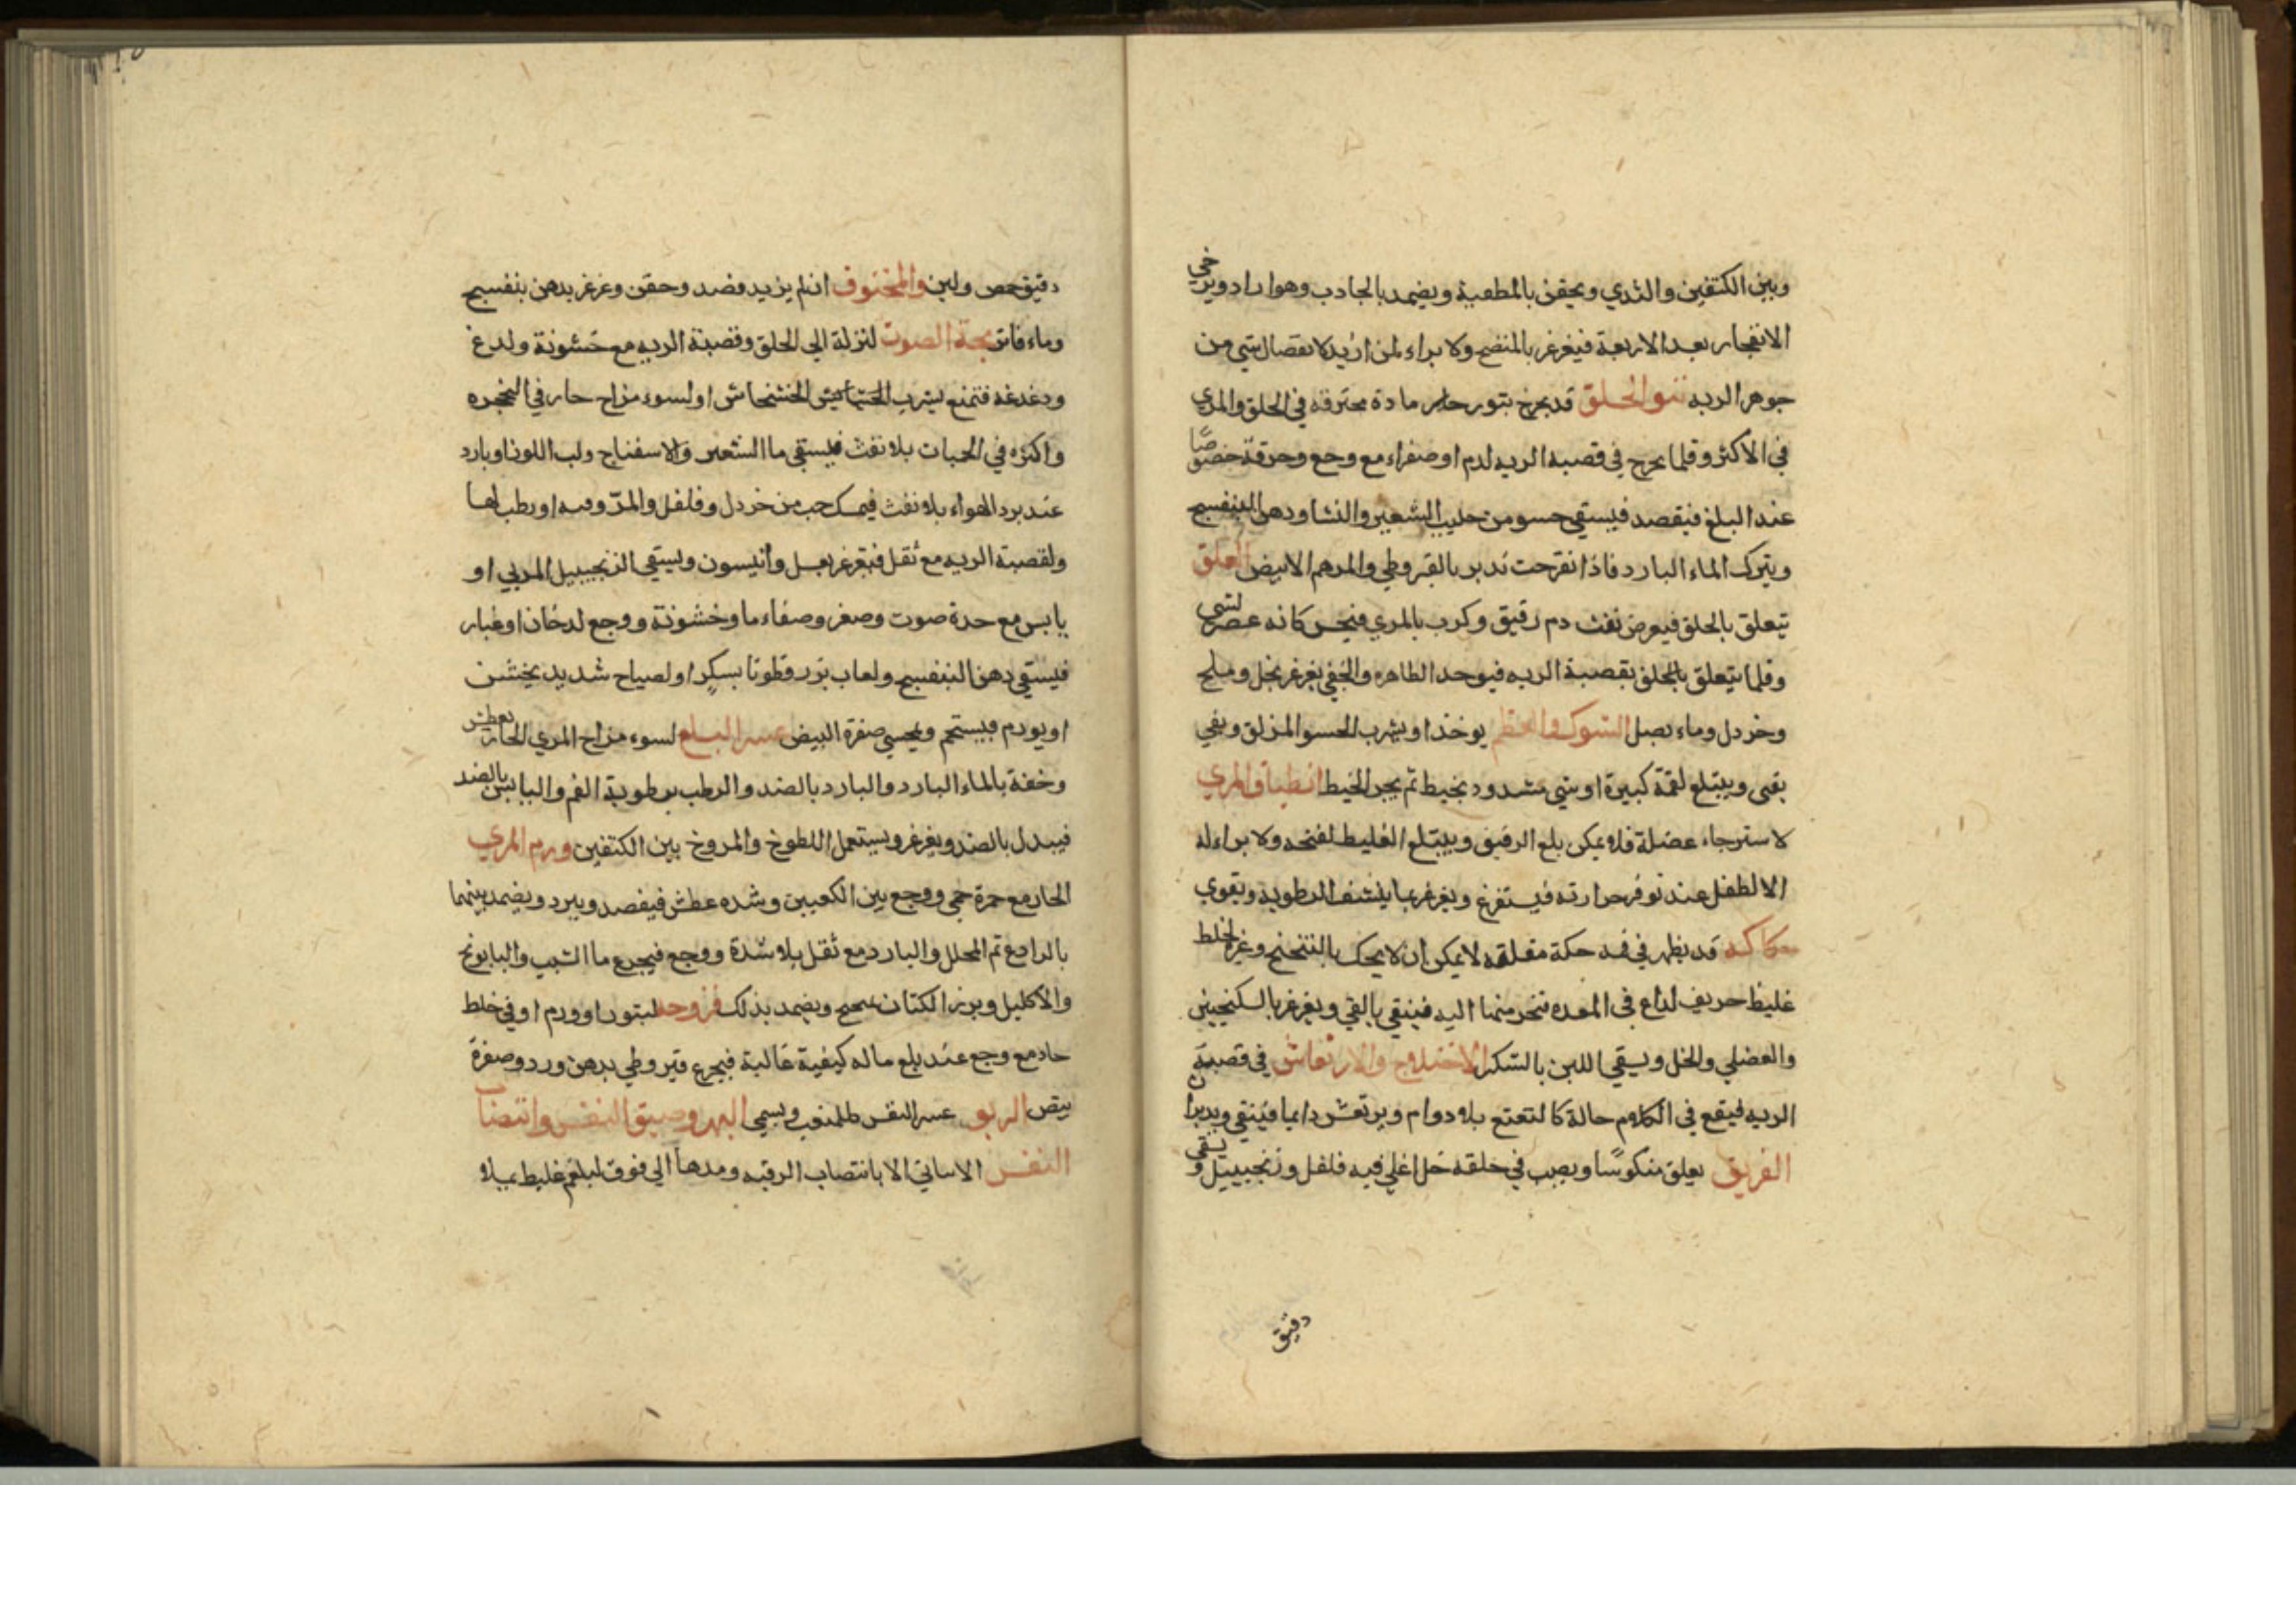 وبين الكتفين والثدي ويحقن بالمطعية ويضمد بالجاذب وهوا راد ويرخي
الانفجار بعد الاربعة فيغرغر بالمنضج ولا براء لمن ازيد لانفصال شي من
جوهر الريه بثور الحلق قد يخرج بثور حار مادة محترقه في الحلق والمري
في الاكثر وقلما يخرج في قصبة الريه لدم او صفراء مع وجع وحرقة خصوصًا
عند البلع فيفصد فيستقي حسو من حليب الشعير والنشا ودهن البنفسج
ويترك الماء البارد فاذا تقرحت ندبر بالقيروطي والمرهم الابيض العلق
يتعلق بالحلق فيعرض نفث دم رقيق وكرب بالمري فيحس كانه عصر لشي
وقلما يتعلق بالحلق بقصبة الريه فيوخذ الظاهر والخفي يغرغر بخل وملح
وخردل وماء بصل الشوك والعظم يوخذ او يشرب الحسو المزلق وبقي
بقى ويبتلع لقمة كبيرة او شي مشدود بخيط ثم يجر الخيط انطباق المري
لاسترخاء عضلة فلا يمكن بلع الرقيق ويبتلع الغليظ لفتحه ولا براء له
الا لطفل عند توفر حرارته فيستفرغ ويغرغر بما ينشف الرطوبة ويقوي
حكاكه قد يظهر في فمه حكة مقلقه لا يمكن ان لا يحك بالتنحنح وغيره لخلط
غليظ حريف لذاع في المعده تنجر منها اليه فينقي بالقي ويغرغر بالسكنجبين
والعنصلي والخل ويسقي اللبن بالسكر الاختلاج والارتعاش في قصبة
الريه فيقع في الكلام حالة كالتعتع بلا دوام ويرتعش دايما فينقي ويدبران
الغريق يعلق منكوسًا ويصب في حلقه خل اغلي فيه فلفل وزنجبيل ويسقى
دقيق
دقيق حمص ولبن والمخنوق ان لم يزيد فصد وحقن وغرغر بدهن بنفسج
وماء فاتر بحة الصوت لنزلة الى الحلق وقصبة الريه مع خشونة ولدغ
ودغدغه فتمنع بشرب الخشخاش او لسوء مزاج حار في الحنجره
واكثره في الحميات بلا نفث فيستقي ما الشعير والاسفناج ولب اللوز او بارد
عند برد الهواء بلا نفث فيمسك حب من خردل وفلفل والمر وفيه او رطب لها
ولقصبة الريه مع ثقل فيغرغر بعسل وانيسون ويسقي الزنجبيل المربي او
يابس مع حدة صوت وصغر وصفاء ما وخشونة ووجع لدخان او غبار
فيسقي دهن البنفسج ولعاب بزر قطونا بسكر او لصياح شديد يخشن
او يورم فيستحم ويحسي صفرة البيض عسر البلع لسوء مزاج المري الحار بعطش
وخفة بالماء البارد والبارد بالضد والرطب برطوبة الفم واليابس بالضد
فيبدل بالضد ويغرغر ويستعمل اللطوخ والمروخ بين الكتفين ورم المري
الحار مع حمرة حمي ووجع بين الكعبين وشده عطش فيفصد ويبرد ويضمد بينهما
بالرادع ثم المحلل والبارد مع ثقل بلا شدة ووجع فيجرع ما الشبت والبابونج
والاكليل وبزر الكتان ويضمد بذلك قروحه لبثور او ورم او في خلط
حاد مع وجع عند بلع ماله كيفية غالبة فيجرع قيروطي بدهن ورد وصفرة
بيض الربو عسر النفس كالمتعب ويسمي البهر وضيق النفس وانتصاب
النفس الا ساتي الا بانتصاب الرقبه ومدها الى فوق لبلغم غليظ بملا